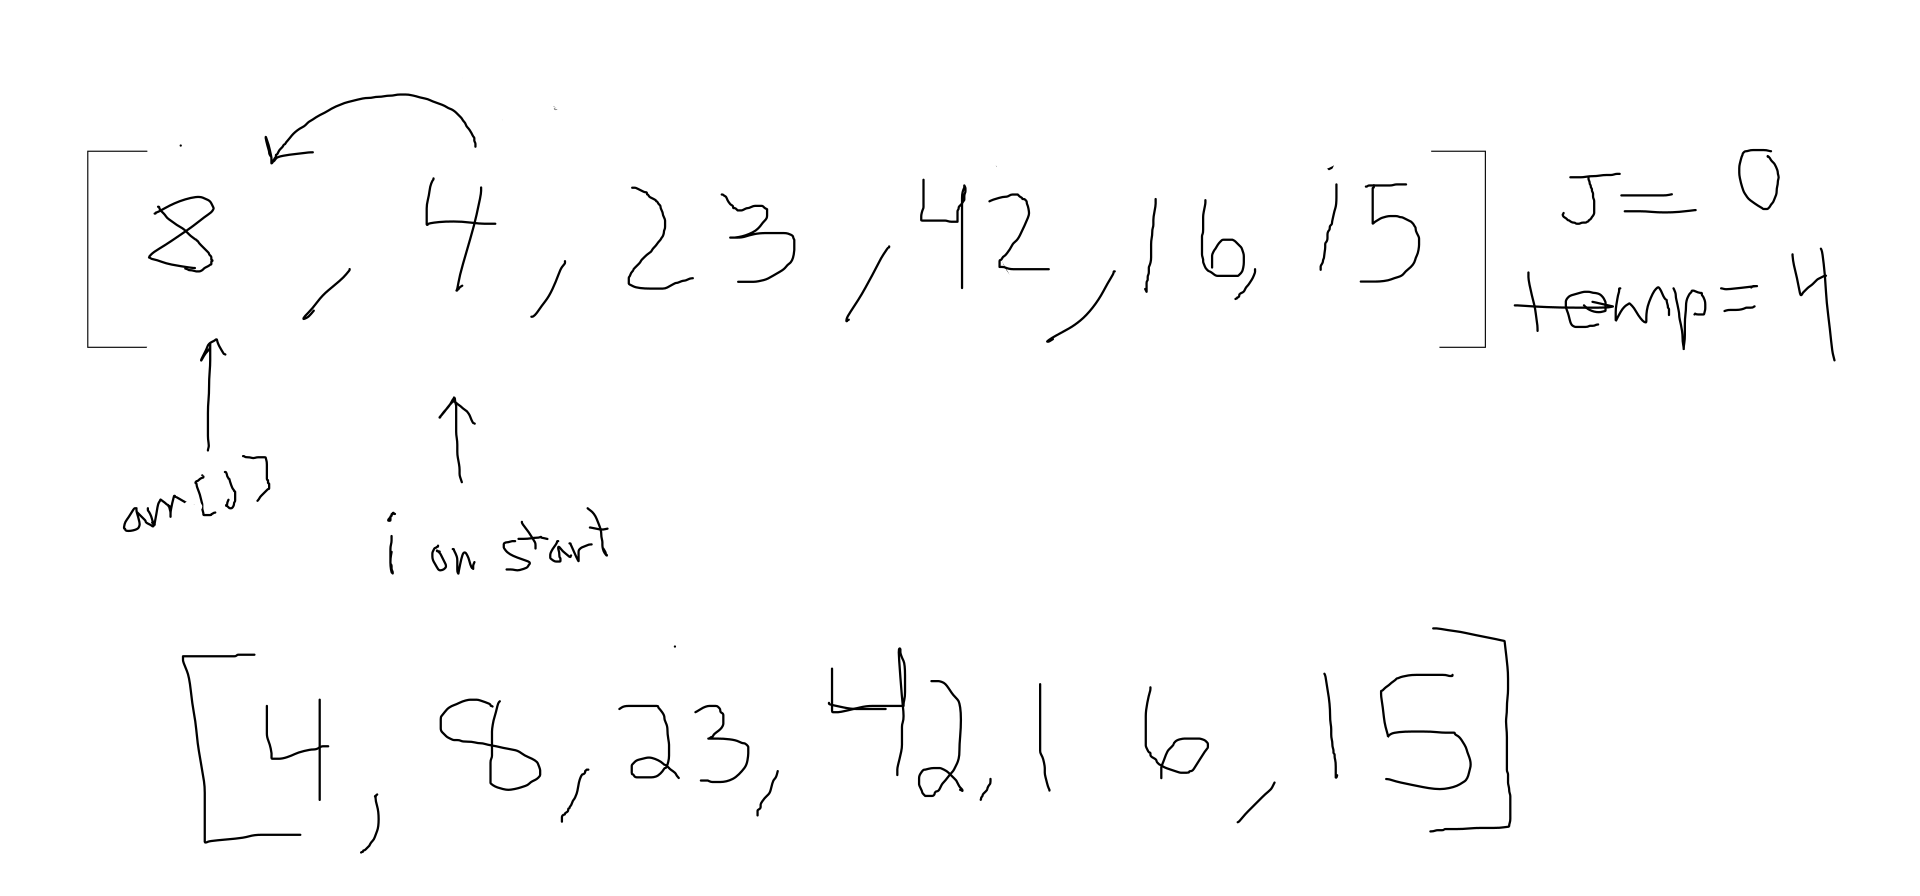 [8, 4, 23, 42, 16, 15] J=0
temp=4
arr[J]
i on start
[4, 8, 23, 42, 16, 15]